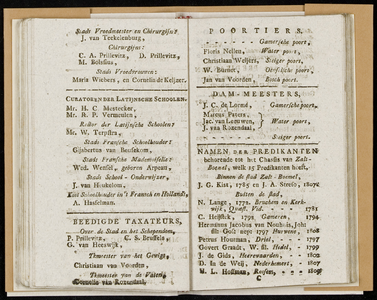 Stads Vroedmeester en Chirurgijn:
J. van Teekelenburg,
Chirurgijns:
C. A. Prillevitz, D. Prillevitz,
M. Bolsius,
Stads Vroedvrouwen:
Maria Wiebers, en Cornelia de Keijzer.
CURATOREN DER LATIJNSCHE SCHOOLEN.
Mr. H. C. Mestecker,
Mr. R. P. Vermeulen,
Rector der Latijnsche Schoolen:
Mr. W. Terpstra,
Stads Fransche Schoolhouder:
Gijsbertus van Beusekom,
Stads Fransche Mademoiselle:
Wed. Wensel, geboren Arpeau,
Stads School-Onderwijzer,
J. van Hinkelom,
Kost Schoolhouder in 't Fransch en Hollands,
A. Hasselman.
BEEDIGDE TAXATEURS,
Over de Stad en het Schependom,
P. Prillevitz, C. S. Beusseln,
G. van Heeswijk,
Themeester van het Gewigt,
Christiaan van Voorden,
Themeester van de Vaten,
Cornelis van Rozendaal,
POORTIERS.
Gamersche poort,
Floris Nellen, Water poort,
Christiaan Weijers, Steiger poort,
W. Burner, Oensche poort,
Jan van Voorden, Bosch poort.
DAM-MEESTERS,
J. C. de Lormé, Gamersche poort,
Marcus Peters,
Jac. van Leeuwen, Water poort,
J. van Rozendaal,
Steiger poort.
NAMEN DER PREDIKANTEN
behoorende tot het Classis van Zalt-
Boemel, welke 25 Predikanten heeft,
Binnen de stad Zalt-Boemel,
J. G. Kist, 1785 en J. A. Streso, 1807.
Buiten de stad,
N. Lange, 1772. Bruchem en Kerk-
wijk, Quæst. Vid. 1781
C. Heijstek, 1795, Gameren, 1794
Hermanus Jacobus van Nouhuis, Johz
die Golt nepr 1797 Hurwene, 1802
Petrus Hourman, Driel, 1797
Govert Grandt, W. Ib. Hedel, 1799
J. de Gids, Heerewaarden, 1802
D. In de Weij, Nederhemert, 1807
M. L. Hoffman, Rossum, 1809
C